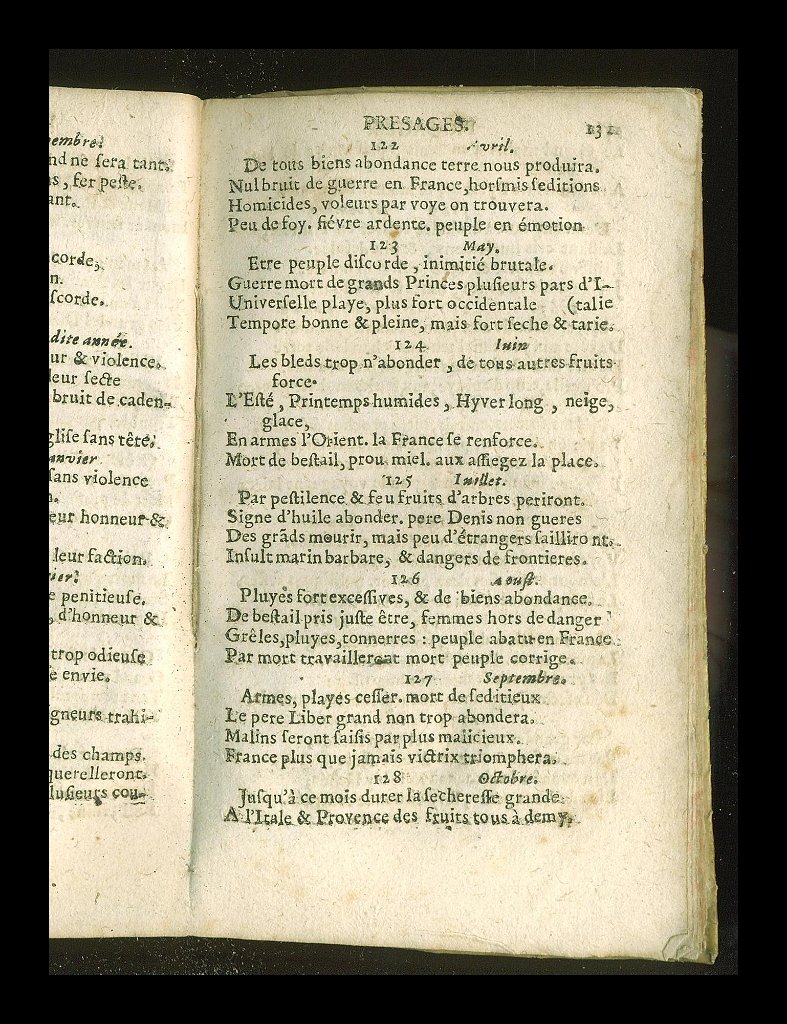 embre.
nd ne ſera tant.
s, fer peſte.
ant.
corde,
n.
ſcorde.
dite année.
ur & violence.
leur ſecte
bruit de caden-
gliſe ſans tête.
anvier
ſans violence
n.
eur honneur &
leur faction.
ier.
e penitieuſe.
, d'honneur &
trop odieuſe
e envie.
igneurs trahi-
des champs.
querelleront.
luſieurs cou-
PRESAGES. 131
122 Avril.
De tous biens abondance terre nous produira.
Nul bruit de guerre en France, horſmis ſeditions
Homicides, voleurs par voye on trouvera.
Peu de foy. fiévre ardente. peuple en émotion
123 May.
Etre peuple diſcorde, inimitié brutale.
Guerre mort de grands Princes pluſieurs pars d'I-
Univerſelle playe, plus fort occidentale (talie
Tempore bonne & pleine, mais fort ſeche & tarie.
124 Iuin
Les bleds trop n'abonder, de tous autres fruits
force.
L'Eſté, Printemps humides, Hyver long, neige,
glace,
En armes l'Orient. la France ſe renforce.
Mort de beſtail, prou miel. aux aſſiegez la place.
125 Iuillet.
Par peſtilence & feu fruits d'arbres periront.
Signe d'huile abonder. pere Denis non gueres
Des grãds mourir, mais peu d'étrangers ſailliront.
Inſult marin barbare, & dangers de frontieres.
126 Aouſt.
Pluyes fort exceſſives, & de biens abondance.
De beſtail pris juſte être, femmes hors de danger
Grêles, pluyes, tonnerres : peuple abatu en France
Par mort travailleront mort peuple corrige.
127 Septembre.
Armes, playes ceſſer. mort de ſeditieux
Le pere Liber grand non trop abondera.
Malins ſeront ſaiſis par plus malicieux.
France plus que jamais victrix triomphera.
128 Octobre.
Juſqu'à ce mois durer la ſechereſſe grande
A l'Itale & Provence des fruits tous à demy.